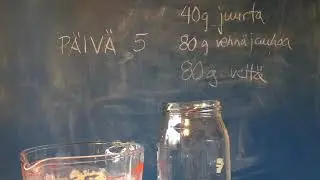 PÄIVÄ 5
40g juurta
80g vehnäjauhoa
80g vettä